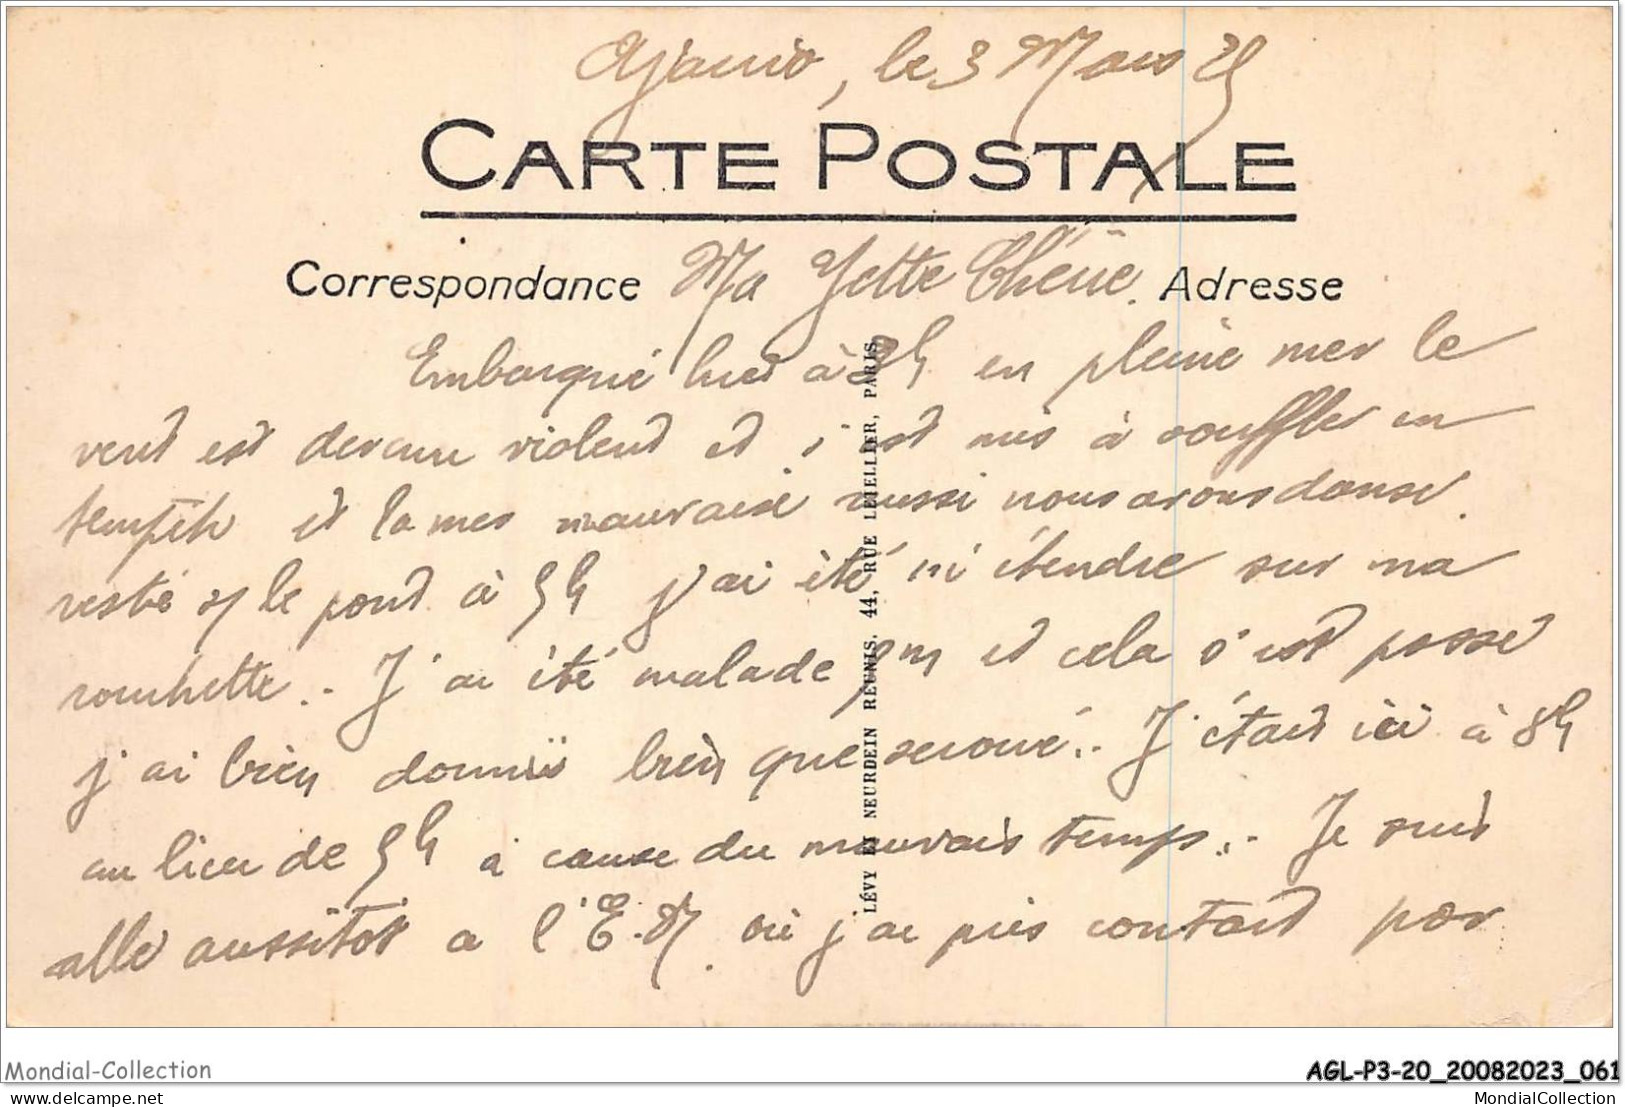 Ajaccio, le 3 Mars 25
CARTE POSTALE
Correspondance Ma Yette Chérie. Adresse
Embarqué hier à 9h en pleine mer le
vent est devenu violent et s'est mis à souffler en
tempête et la mer mauvaise aussi nous avons dansé.
resté s/ le pont à 5h j'ai été m'étendre sur ma
couchette. J'ai été malade et cela s'est passé
j'ai bien dormi bien que secoué. J'étais ici à 8h
au lieu de 5h à cause du mauvais temps. Je suis
allé aussitôt a l'E.M. où j'ai pris contact par
LÉVY ET NEURDEIN RÉUNIS, 44, RUE LETELLIER, PARIS
Mondial-Collection
AGL-P3-20_20082023_061
delcampe.net
MondialCollection